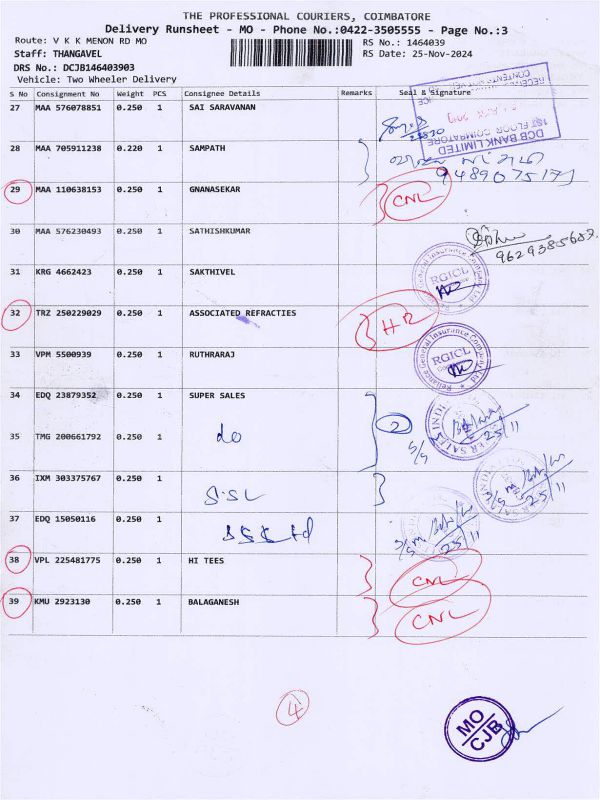 THE PROFESSIONAL COURIERS, COIMBATORE
Delivery Runsheet - MO - Phone No.:0422-3505555 - Page No.:3
Route: V K K MENON RD MO
RS No.: 1464039
Staff: THANGAVEL
RS Date: 25-Nov-2024
DRS No.: DCJB146403903
Vehicle: Two Wheeler Delivery
S No Consignment No Weight PCS Consignee Details Remarks Seal & Signature
RECEIVED
CONTENTS NOT VER
DCB BANK LIMITED
1ST FLOOR COIMBATORE
27 MAA 576078851 0.250 1 SAI SARAVANAN
28 MAA 705911238 0.220 1 SAMPATH
9489075173
29 MAA 110638153 0.250 1 GNANASEKAR CNL
30 MAA 576230493 0.250 1 SATHISHKUMAR
9629385687
31 KRG 4662423 0.250 1 SAKTHIVEL
Reliance General Insurance Company Ltd
RGICL
32 TRZ 250229029 0.250 1 ASSOCIATED REFRACTIES HR
33 VPM 5500939 0.250 1 RUTHRARAJ
Reliance General Insurance Company Ltd.
RGICL
34 EDQ 23879352 0.250 1 SUPER SALES
2
SUPER SALES INDIA
25/11
35 TMG 200661792 0.250 1 do
S/S
36 IXM 303375767 0.250 1 S.S.L
25/11
37 EDQ 15050116 0.250 1
25/11
38 VPL 225481775 0.250 1 HI TEES CNL
39 KMU 2923130 0.250 1 BALAGANESH CNL
4
MO
CJB